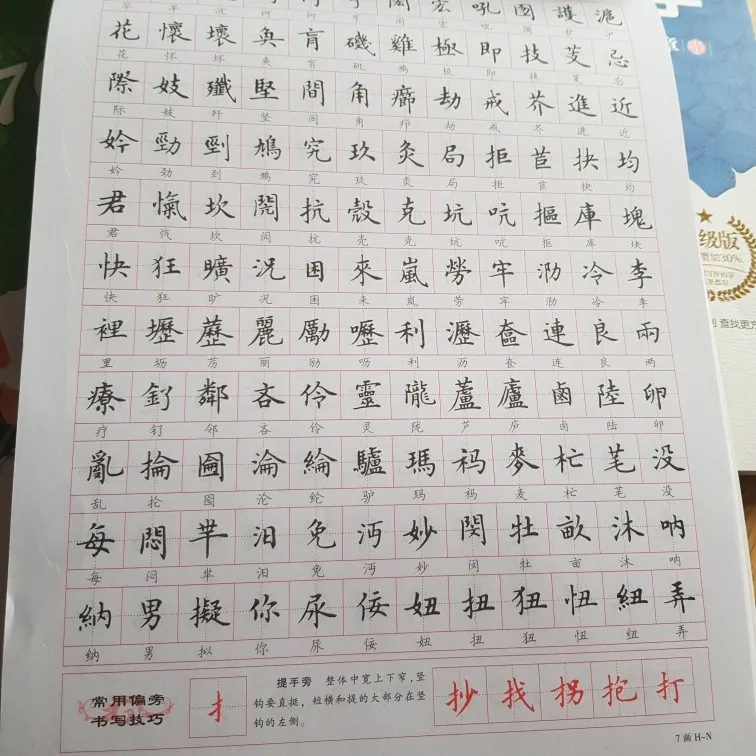 宏 吼 園 護 滬
花 懷 壞 奐 肓 磯 雞 極 即 技 芰 忌
花 怀 坏 奂 肓 矶 鸡 极 即 技 芰 忌
際 妓 殲 堅 間 角 癤 劫 戒 芥 進 近
际 妓 歼 坚 间 角 疖 劫 戒 芥 进 近
妗 勁 剄 鳩 究 玖 灸 局 拒 苣 抉 均
妗 劲 刭 鸠 究 玖 灸 局 拒 苣 抉 均
君 愾 坎 閌 抗 殼 克 坑 吭 摳 庫 塊
君 忾 坎 闶 抗 壳 克 坑 吭 抠 库 块
快 狂 曠 況 困 來 嵐 勞 牢 泐 冷 李
快 狂 旷 况 困 来 岚 劳 牢 泐 冷 李
裡 壢 藶 麗 勵 嚦 利 瀝 奩 連 良 兩
里 坜 苈 丽 励 呖 利 沥 奁 连 良 两
療 釕 鄰 吝 伶 靈 隴 蘆 廬 鹵 陸 卵
疗 钌 邻 吝 伶 灵 陇 芦 庐 卤 陆 卵
亂 掄 圇 淪 綸 驢 瑪 祃 麥 杧 芼 没
乱 抡 囵 沦 纶 驴 玛 祃 麦 杧 芼 没
每 悶 芈 汨 免 沔 妙 閔 牡 畝 沐 呐
每 闷 芈 汨 免 沔 妙 闵 牡 亩 沐 呐
納 男 擬 你 尿 佞 妞 扭 狃 忸 紐 弄
纳 男 拟 你 尿 佞 妞 扭 狃 忸 纽 弄
常用偏旁
书写技巧
扌
提手旁 整体中宽上下窄，竖
钩要直挺，短横和提的大部分在竖
钩的左侧。
抄 找 拐 抱 打
7画 H-N
级版
查找更方